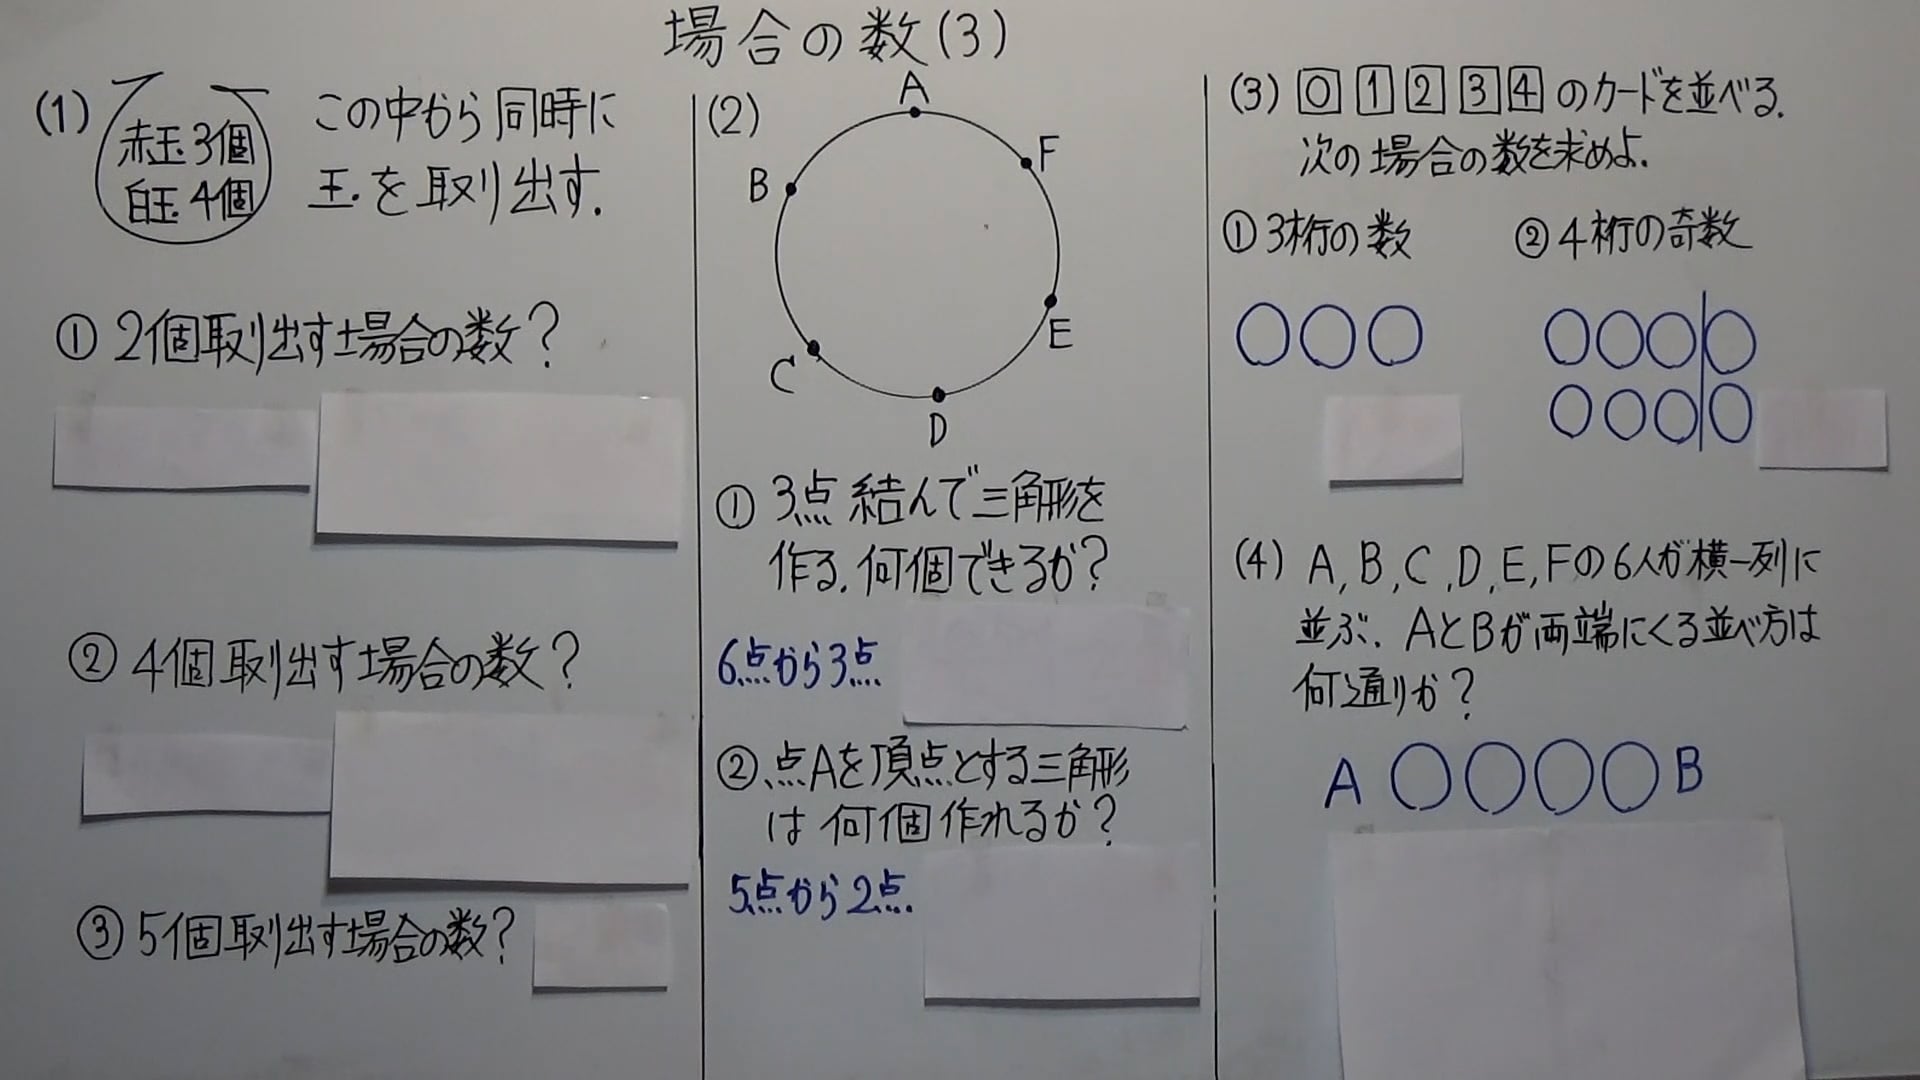 場合の数(3)
(1)
赤玉3個
白玉4個
この中から同時に
玉を取り出す.
① 2個取り出す場合の数?
② 4個取り出す場合の数?
③ 5個取り出す場合の数?
(2)
A
B
F
E
C
D
① 3点結んで三角形を
作る.何個できるか?
6点から3点
② 点Aを頂点とする三角形
は何個作れるか?
5点から2点.
(3) 0 1 2 3 4 のカードを並べる.
次の場合の数を求めよ.
① 3桁の数 ② 4桁の奇数
(4) A, B, C, D, E, Fの6人が横一列に
並ぶ. AとBが両端にくる並べ方は
何通りか?
A ○○○○ B